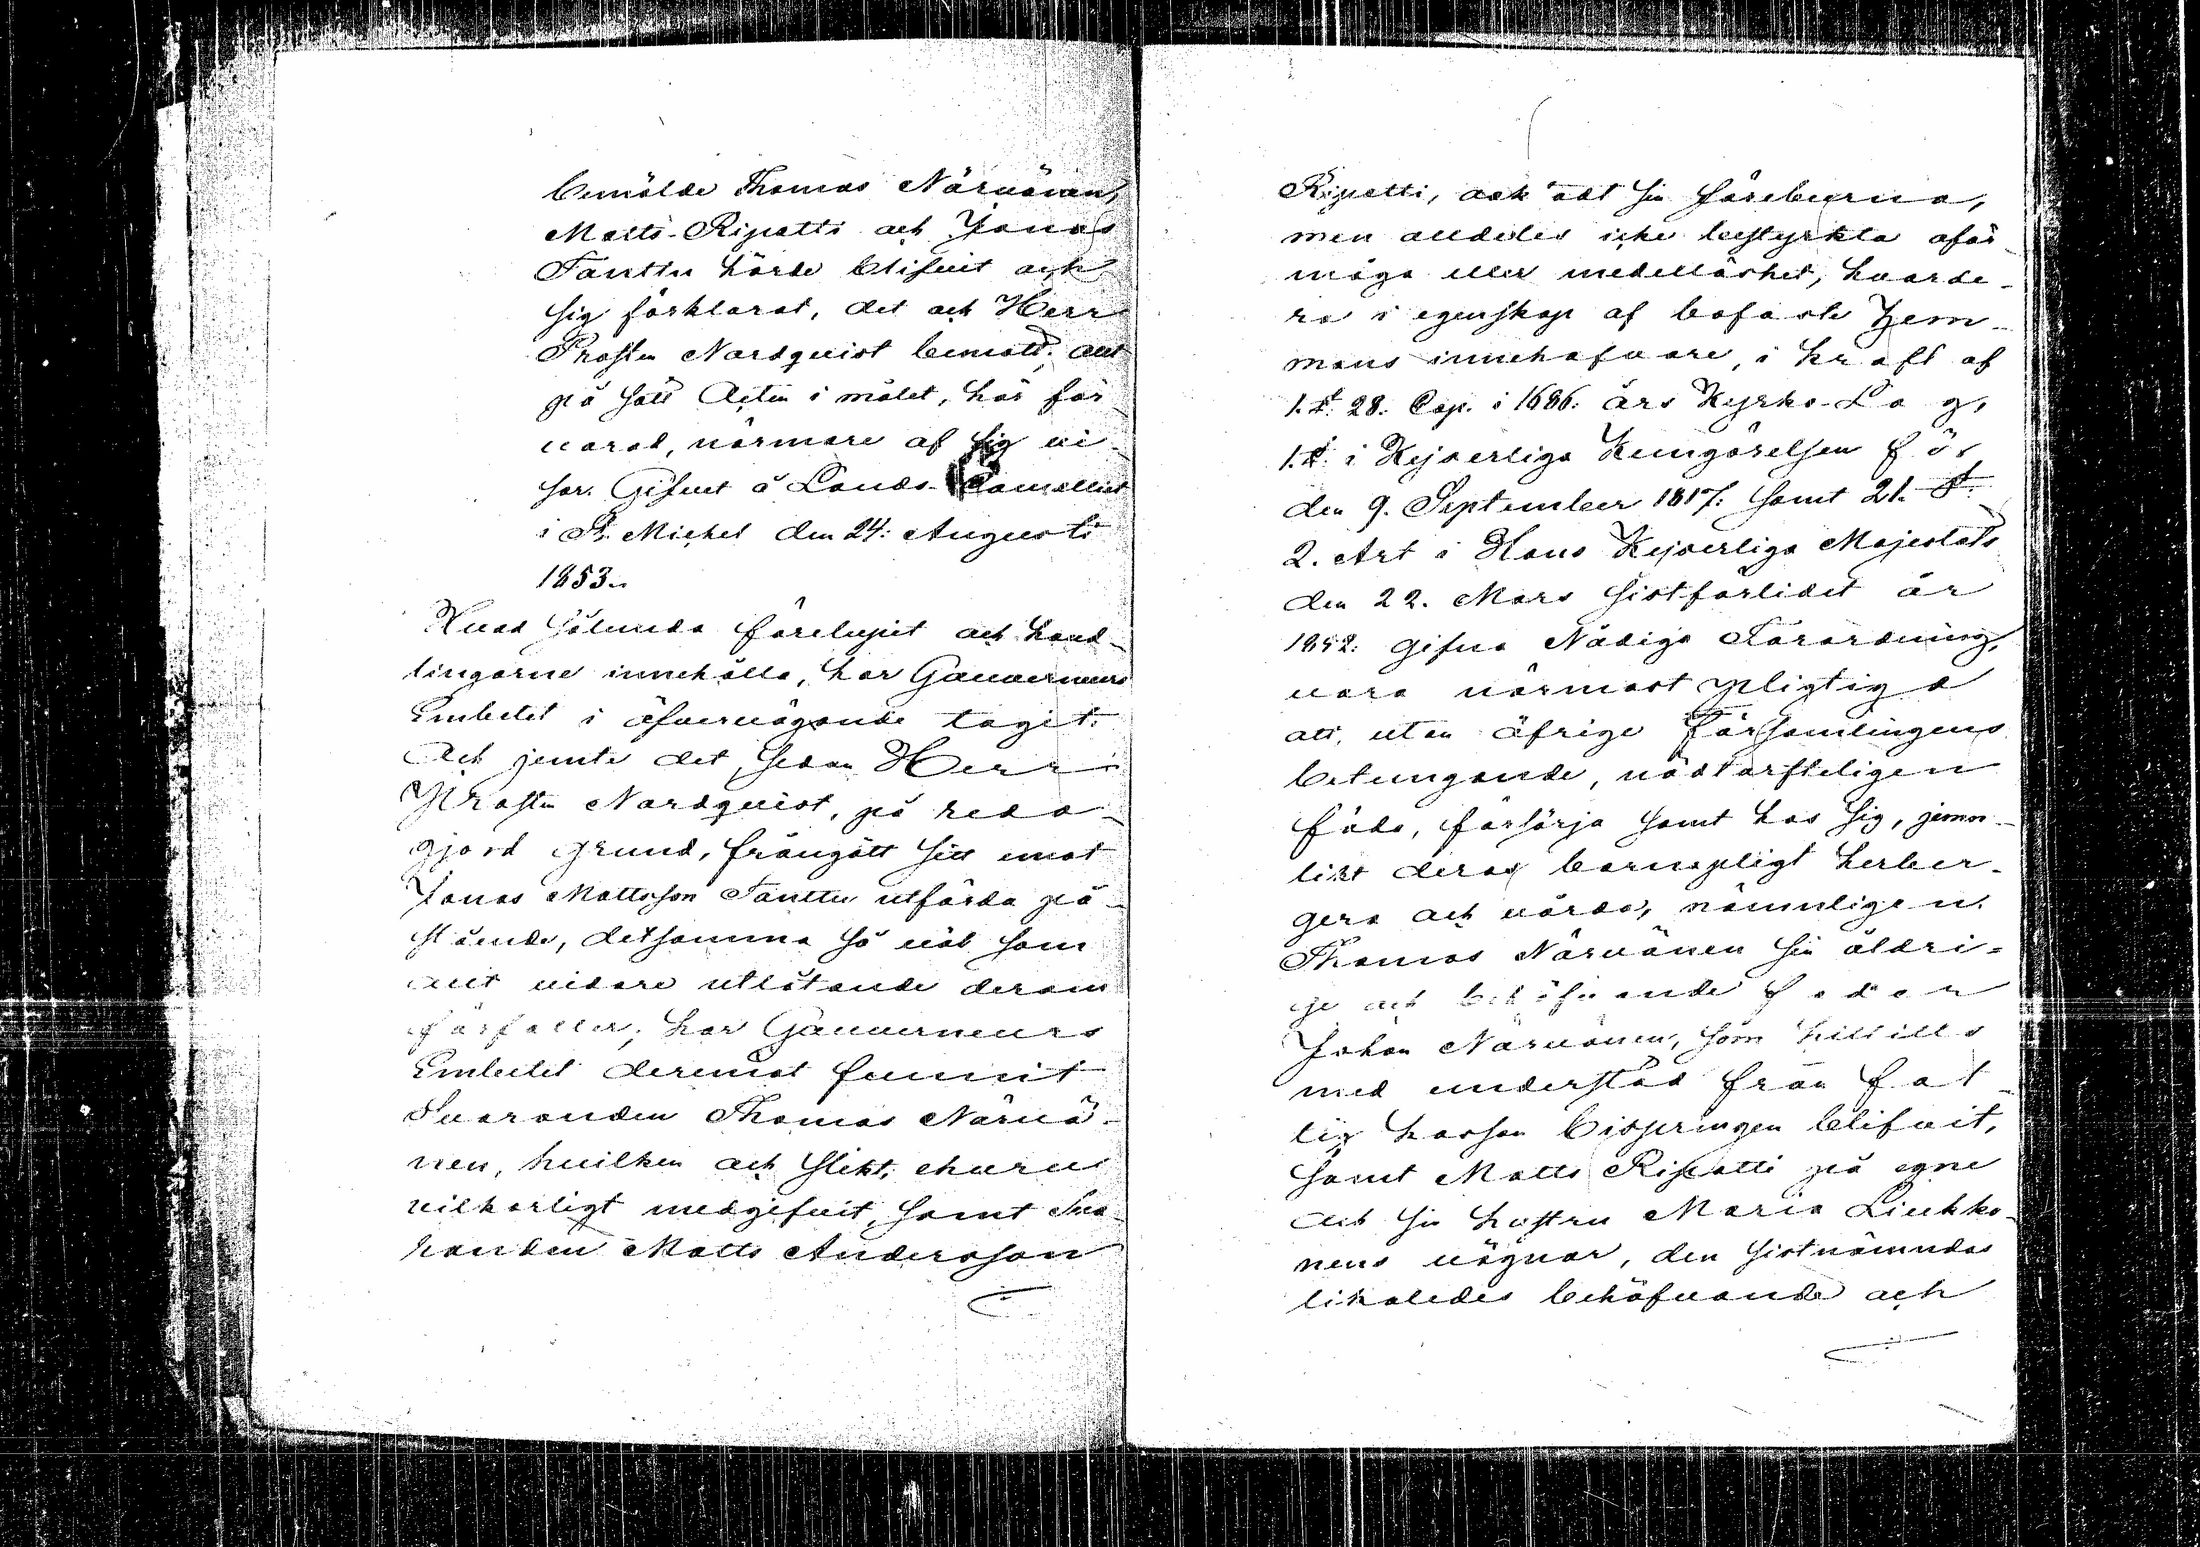 bemälde Thomas Närvänen,
Matts Ripatti och Jonas
Tanttu hörde blifvit och
sig förklarat, det ock Herr
Prosten Nordqvist bemött, allt
på sätt Acten i målet, här för
varad, närmare af sig vi-
sar. Gifvet å Lands-Canselliet
i St. Michel den 24: Augusti
1853..
Hvad sålunda förelupit och hand-
lingarne innehålla, har Gouverneurs
Embetet i öfvervägande tagit.
Och jemte det, sedan Herr
Prosten Nordqvist, på reda-
gjord grund, frångått sitt emot
Jonas Mattsson Tanttu utförda på-
stående, detsamma så väl som
allt vidare utlåtande derom
förfaller; har Gouverneurs
Embetet deremot funnit
Svaranden Thomas Närvä-
nen, hvilken ock slikt, ehuru
vilkorligt medgifvit, samt Sva-
randen Matts Andersson
Ripatti, ock åt sin föreburna,
men alldeles icke bestyrkta oför-
möga eller medellöshet, hvarde-
ra i egenskap af bofaste Hem-
mans innehafvare, i kraft af
1. §. 28. Cap. i 1686. års Kyrko-Lag,
1. §. i Kejserliga Kungörelsen för
den 9. September 1817. samt 21. §.
2. Art i Hans Kejserliga Majestäts
den 22. Mars sistförlidet år
1852. gifna Nådiga Förordning,
vara närmast pligtiga
att, utan öfrige Församlingens
betungande, nödtorfteligen
föda, försörja samt hos sig, jemn-
likt deras barnapligt herber-
gera och vårda, nämnligen.
Thomas Närvänen sin åldri-
ge och behöfvande fader
Johan Närvänen, som hittills
med understöd från fat-
tig kassan bisprungen blifvit,
samt Matts Ripatti på egne
och sin hustru Maria Liukko-
nens vägnar, den sistnämndas
likaledes behöfvande och